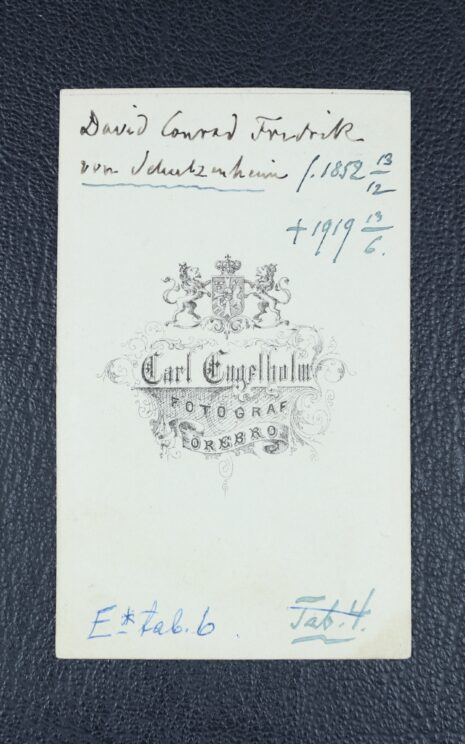 David Conrad Fredrik
von Schultzenheim f. 1852 13/12
+ 1919 13/6.
Carl Engelholm
FOTOGRAF
ÖREBRO
E* tab. 6.
Tab. 4.